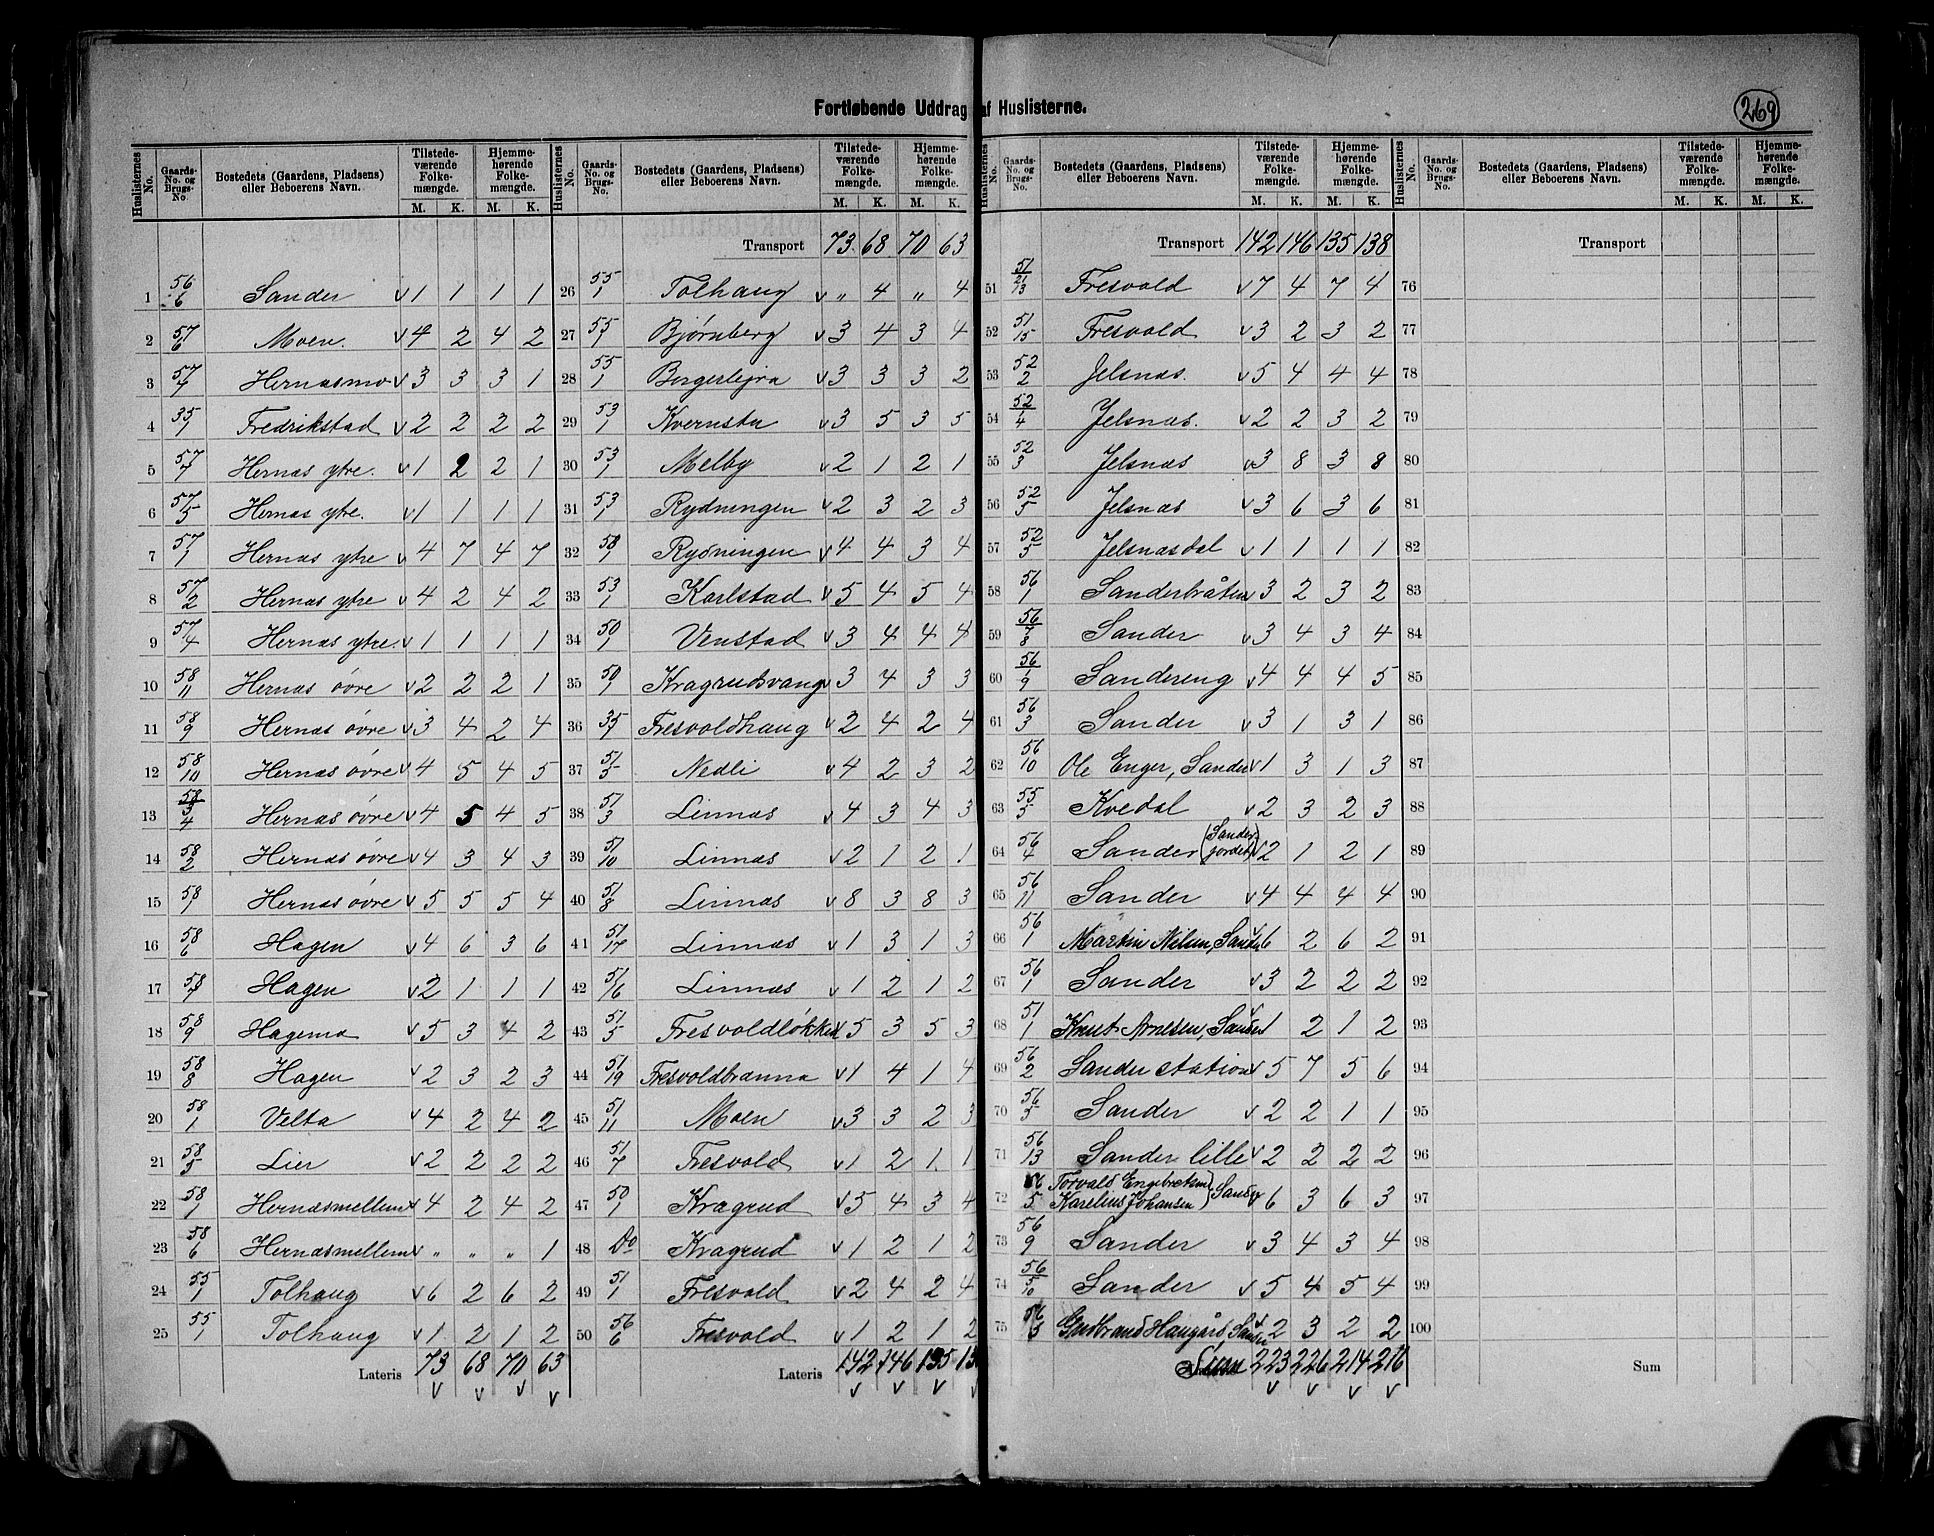 Fortløbende Uddrag af Huslisterne.
269
Huslisternes No. | Gaards-No. og Brugs-No. | Bostedets (Gaardens, Pladsens) eller Beboerens Navn. | Tilstedeværende Folkemængde. M. K. | Hjemmehørende Folkemængde. M. K.
1 56/6 Sander v 1 1 1 1
2 57/6 Moen. v 4 2 4 2
3 57/7 Hernæsmo v 3 3 3 1
4 35/1 Fredrikstad v 2 2 2 2
5 57/7 Hernæs ytre. v 1 2 2 1
6 57/5 Hernæs ytre. v 1 1 1 1
7 57/1 Hernæs ytre v 4 7 4 7
8 57/2 Hernæs ytre v 4 2 4 2
9 57/4 Hernæs ytre. v 1 1 1 1
10 58/11 Hernæs øvre v 2 2 2 1
11 58/9 Hernæs øvre v 3 4 2 4
12 58/10 Hernæs øvre v 4 5 4 5
13 58/3/4 Hernæs øvre v 4 5 4 5
14 58/2 Hernæs øvre v 4 3 4 3
15 58/1 Hernæs øvre v 5 5 5 4
16 58/6 Hagen v 4 6 3 6
17 58/7 Hagen v 2 1 1 1
18 58/9 Hagema v 5 3 4 2
19 58/8 Hagen v 2 3 2 3
20 58/1 Velta v 4 2 4 2
21 58/5 Lier v 2 2 2 2
22 58/1 Hernæsmellem v 4 2 4 2
23 58/6 Hernæsmellem v " " " 1
24 55/1 Tolhaug v 6 2 6 2
25 55/1 Tolhaug v 1 2 1 2
Lateris 73 68 70 63
v v v v
Huslisternes No. | Gaards-No. og Brugs-No. | Bostedets (Gaardens, Pladsens) eller Beboerens Navn. | Tilstedeværende Folkemængde. M. K. | Hjemmehørende Folkemængde. M. K.
Transport 73 68 70 63
26 55/1 Tolhaug v " 4 " 4
27 55/1 Bjørnberg v 3 4 3 4
28 55/1 Borgerlejra v 3 3 3 2
29 53/1 Kvernstu v 3 5 3 5
30 53/1 Melby v 2 1 2 1
31 53/1 Rydningen v 2 3 2 3
32 50/1 Rydningen v 4 4 3 4
33 53/1 Karlstad v 5 4 5 4
34 50/1 Venstad v 3 4 4 4
35 50/1 Kragrudsvang v 3 4 3 3
36 35/7 Fresvoldhaug v 2 4 2 4
37 51/5 Nedli v 4 2 3 2
38 51/3 Linnæs v 4 3 4 3
39 51/10 Linnæs v 2 1 2 1
40 51/8 Linnæs v 8 3 8 3
41 51/17 Linnæs v 1 3 1 3
42 51/6 Linnæs v 1 2 1 2
43 51/5 Fresvoldløkken v 5 3 5 3
44 51/19 Fresvoldbrænna v 1 4 1 4
45 51/11 Moen v 3 3 2 3
46 51/7 Fresvold v 1 2 1 1
47 50/1 Kragrud v 5 4 3 4
48 Do Kragrud v 1 2 1 2
49 51/1 Fresvold v 2 4 2 4
50 56/6 Fresvold v 1 2 1 2
Lateris 142 146 135 13
v v v v
Huslisternes No. | Gaards-No. og Brugs-No. | Bostedets (Gaardens, Pladsens) eller Beboerens Navn. | Tilstedeværende Folkemængde. M. K. | Hjemmehørende Folkemængde. M. K.
Transport 142 146 135 138
51 51/21/13 Fresvold v 7 4 7 4
52 51/15 Fresvold v 3 2 3 2
53 52/2 Jelsnæs. v 5 4 4 4
54 52/4 Jelsnæs. v 2 2 3 2
55 52/3 Jelsnæs v 3 8 3 8
56 52/5 Jelsnæs v 3 6 3 6
57 52/5 Jelsnæsdal v 1 1 1 1
58 56/1 Sanderbråten v 3 2 3 2
59 56/7/8 Sander v 3 4 3 4
60 56/9 Sandereng v 4 4 4 5
61 56/3 Sander v 3 1 3 1
62 56/10 Ole Enger, Sander v 1 3 1 3
63 55/5 Kvedal v 2 3 2 3
64 56/4 Sander (Sanderjordet) v 2 1 2 1
65 56/11 Sander v 4 4 4 4
66 56/1 Martin Nilsen, Sander v 6 2 6 2
67 56/1 Sander v 3 2 2 2
68 51/1 Knut Arnesen, Sander v 1 2 1 2
69 56/2 Sander station v 5 7 5 6
70 56/5 Sander v 2 2 1 1
71 56/13 Sander lille v 2 2 2 2
72 56/5 Torvald Engebretsen Karelius Johansen) Sander v 6 3 6 3
73 56/9 Sander v 3 4 3 4
74 56/5/10 Sander v 5 4 5 4
75 56/5 Gudbrand Haugård, Sander v 2 3 2 2
Sum 223 226 214 216
v v v v
Huslisternes No. | Gaards-No. og Brugs-No. | Bostedets (Gaardens, Pladsens) eller Beboerens Navn. | Tilstedeværende Folkemængde. M. K. | Hjemmehørende Folkemængde. M. K.
Transport
76
77
78
79
80
81
82
83
84
85
86
87
88
89
90
91
92
93
94
95
96
97
98
99
100
Sum